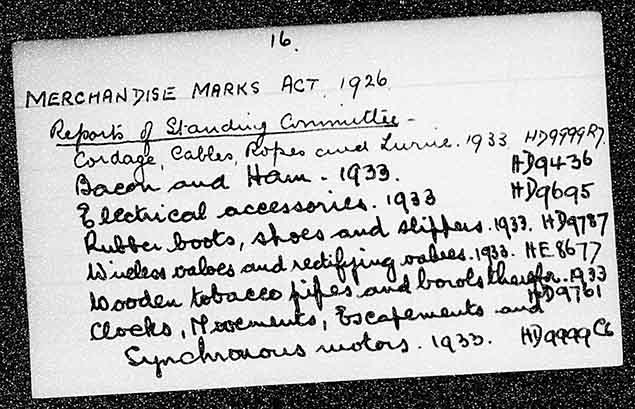 16.
MERCHANDISE MARKS ACT. 1926.
Reports of Standing Committee -
Cordage, Cables, Ropes and Twine. 1933 HD9999R7.
Bacon and Ham. 1933. HD9436
Electrical accessories. 1933 HD9695
Rubber boots, shoes and slippers. 1933. HD9787
Wireless valves and rectifying valves. 1933. HE8677
Wooden tobacco pipes and bowls therefor. 1933 HD9761
Clocks, Movements, Escapements and
Synchronous motors. 1933. HD9999C6